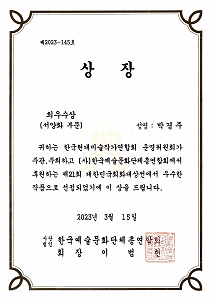 제2023-145호
상 장
최우수상
(서양화 부문)
성명 : 박정주
귀하는 한국현대미술작가연합회 운영위원회가
주관, 주최하고 (사)한국예술문화단체총연합회에서
후원하는 제21회 대한민국회화대상전에서 우수한
작품으로 선정되었기에 이 상을 드립니다.
2023년 3월 15일
사단법인 한국예술문화단체총연합회
회 장 이 범 헌